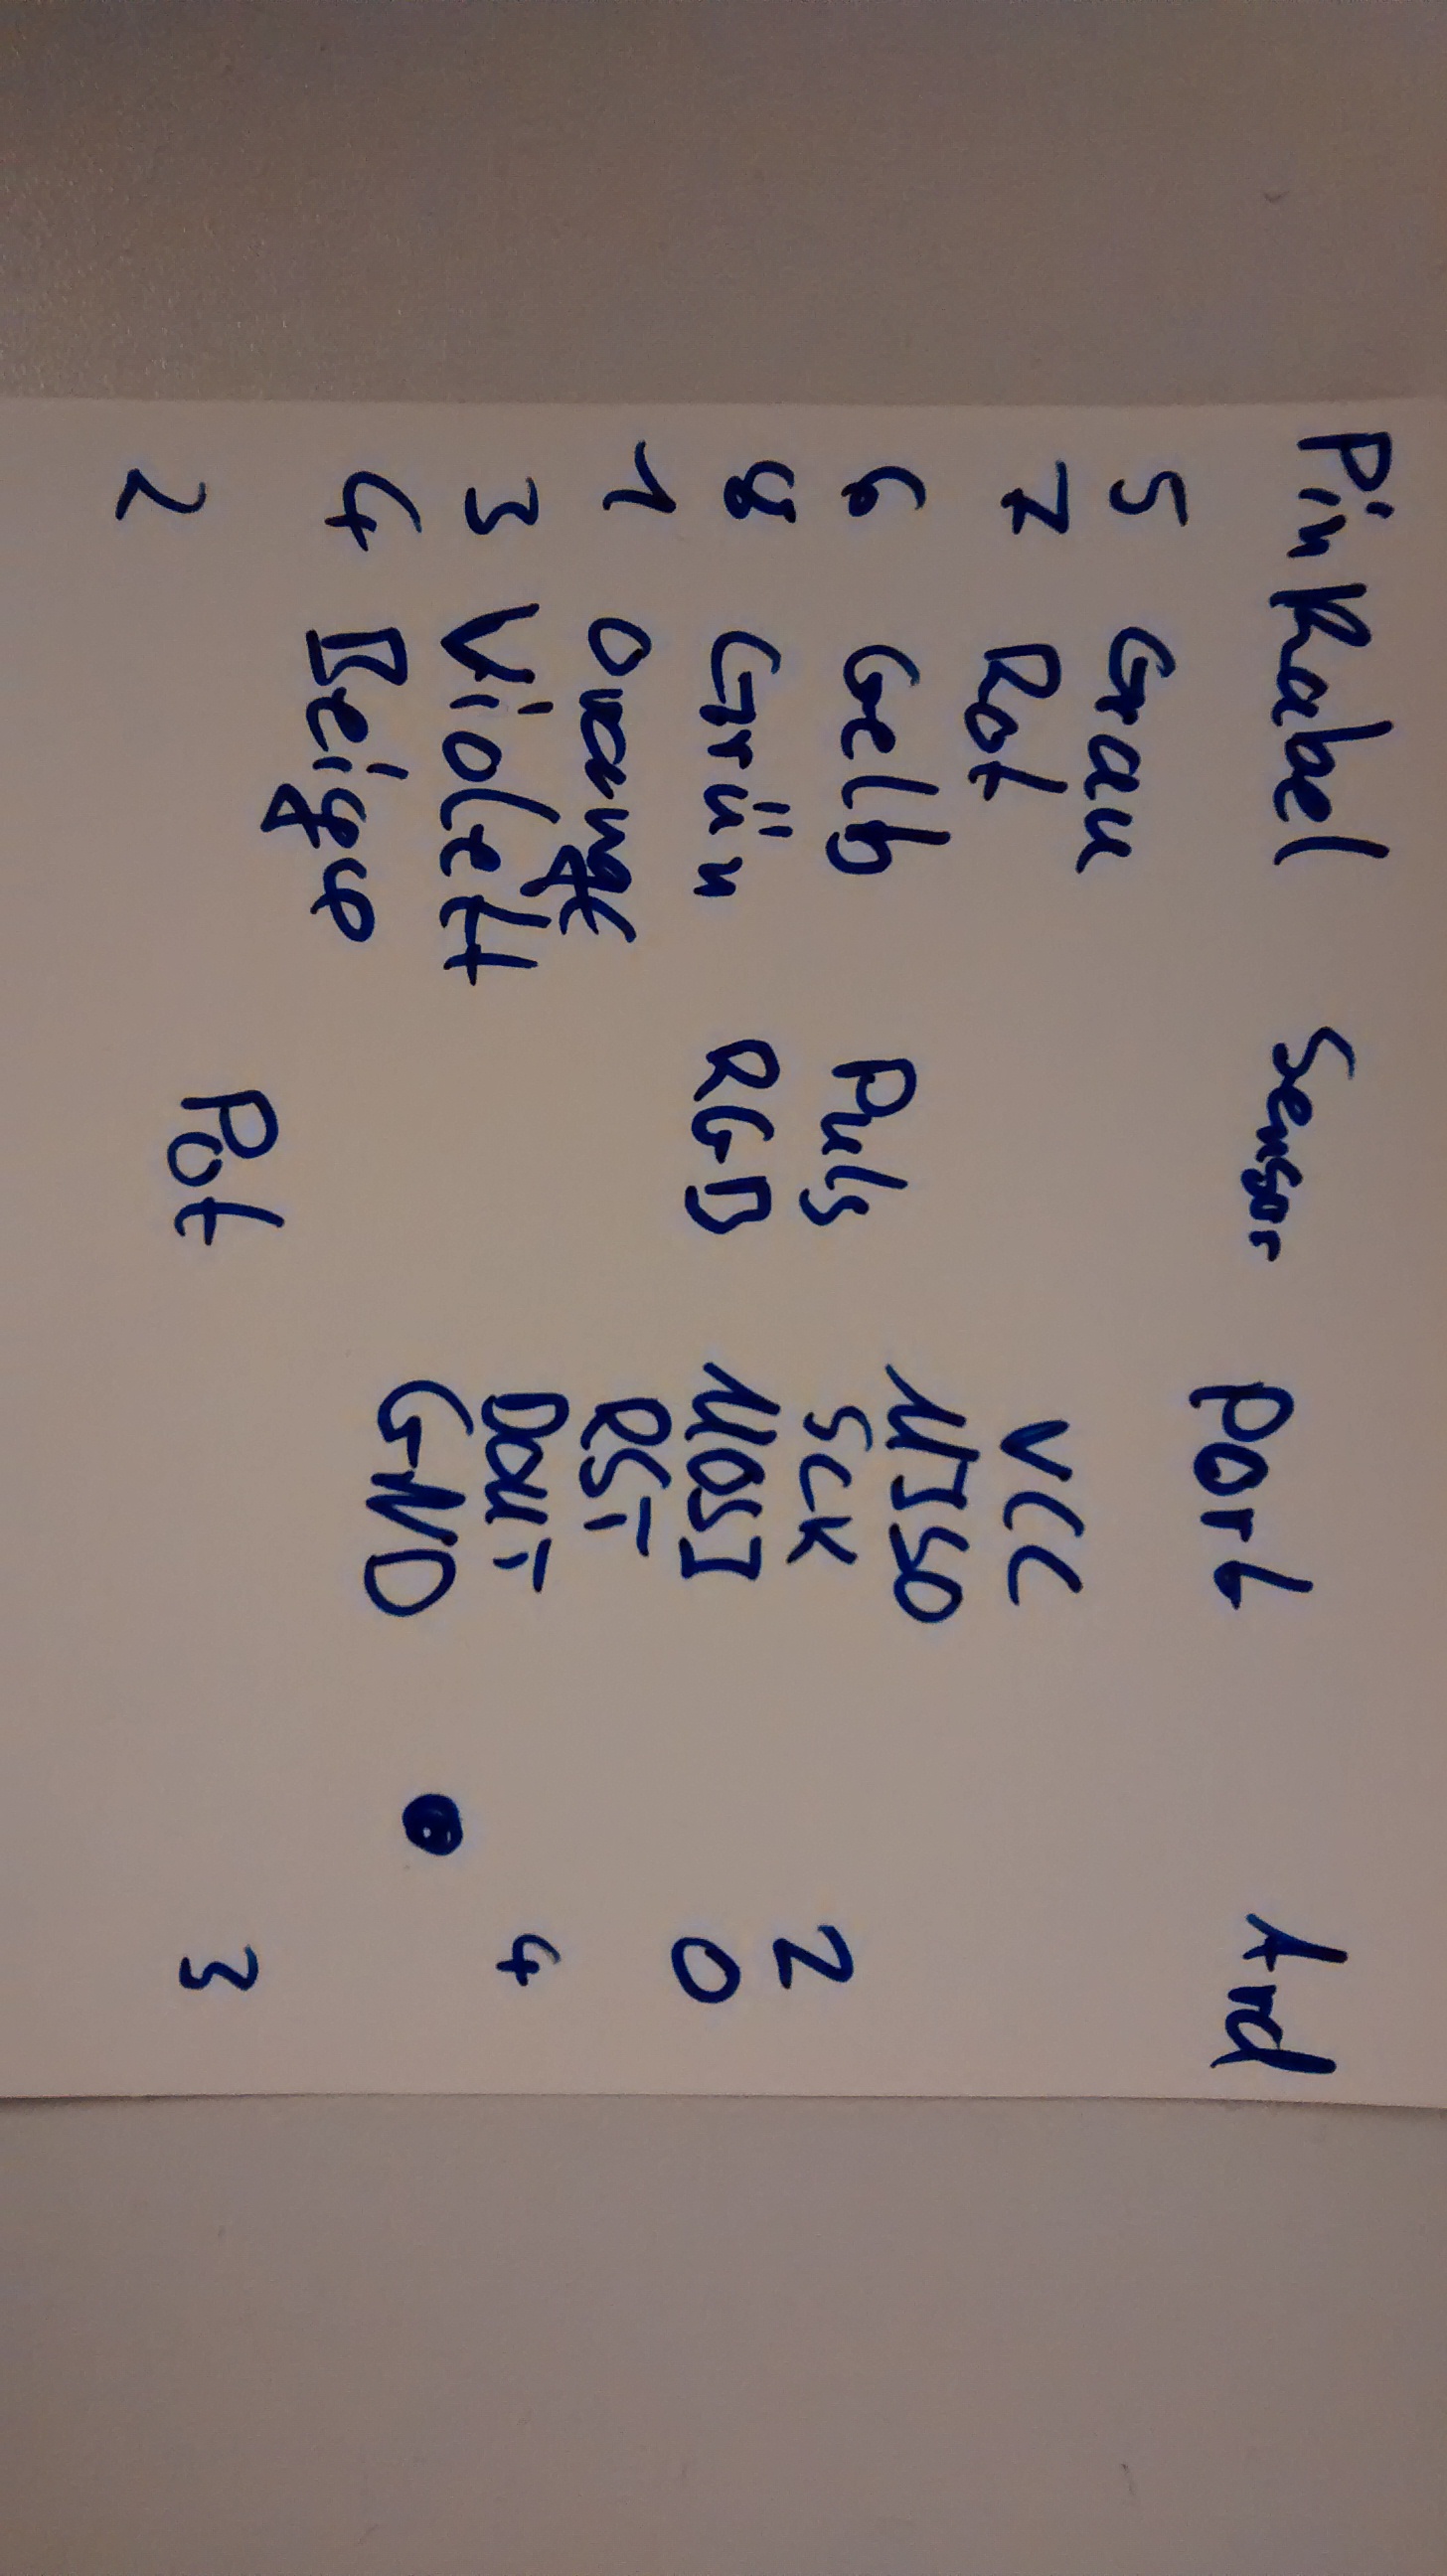 Pin Kabel Sensor Port Ard
5 Grau VCC
7 Rot MISO
6 Gelb Puls SCK 2
8 Grün RGB MOSI 0
1 Orange RST
3 Violett 4
4 Beige GND
2 Pot 3